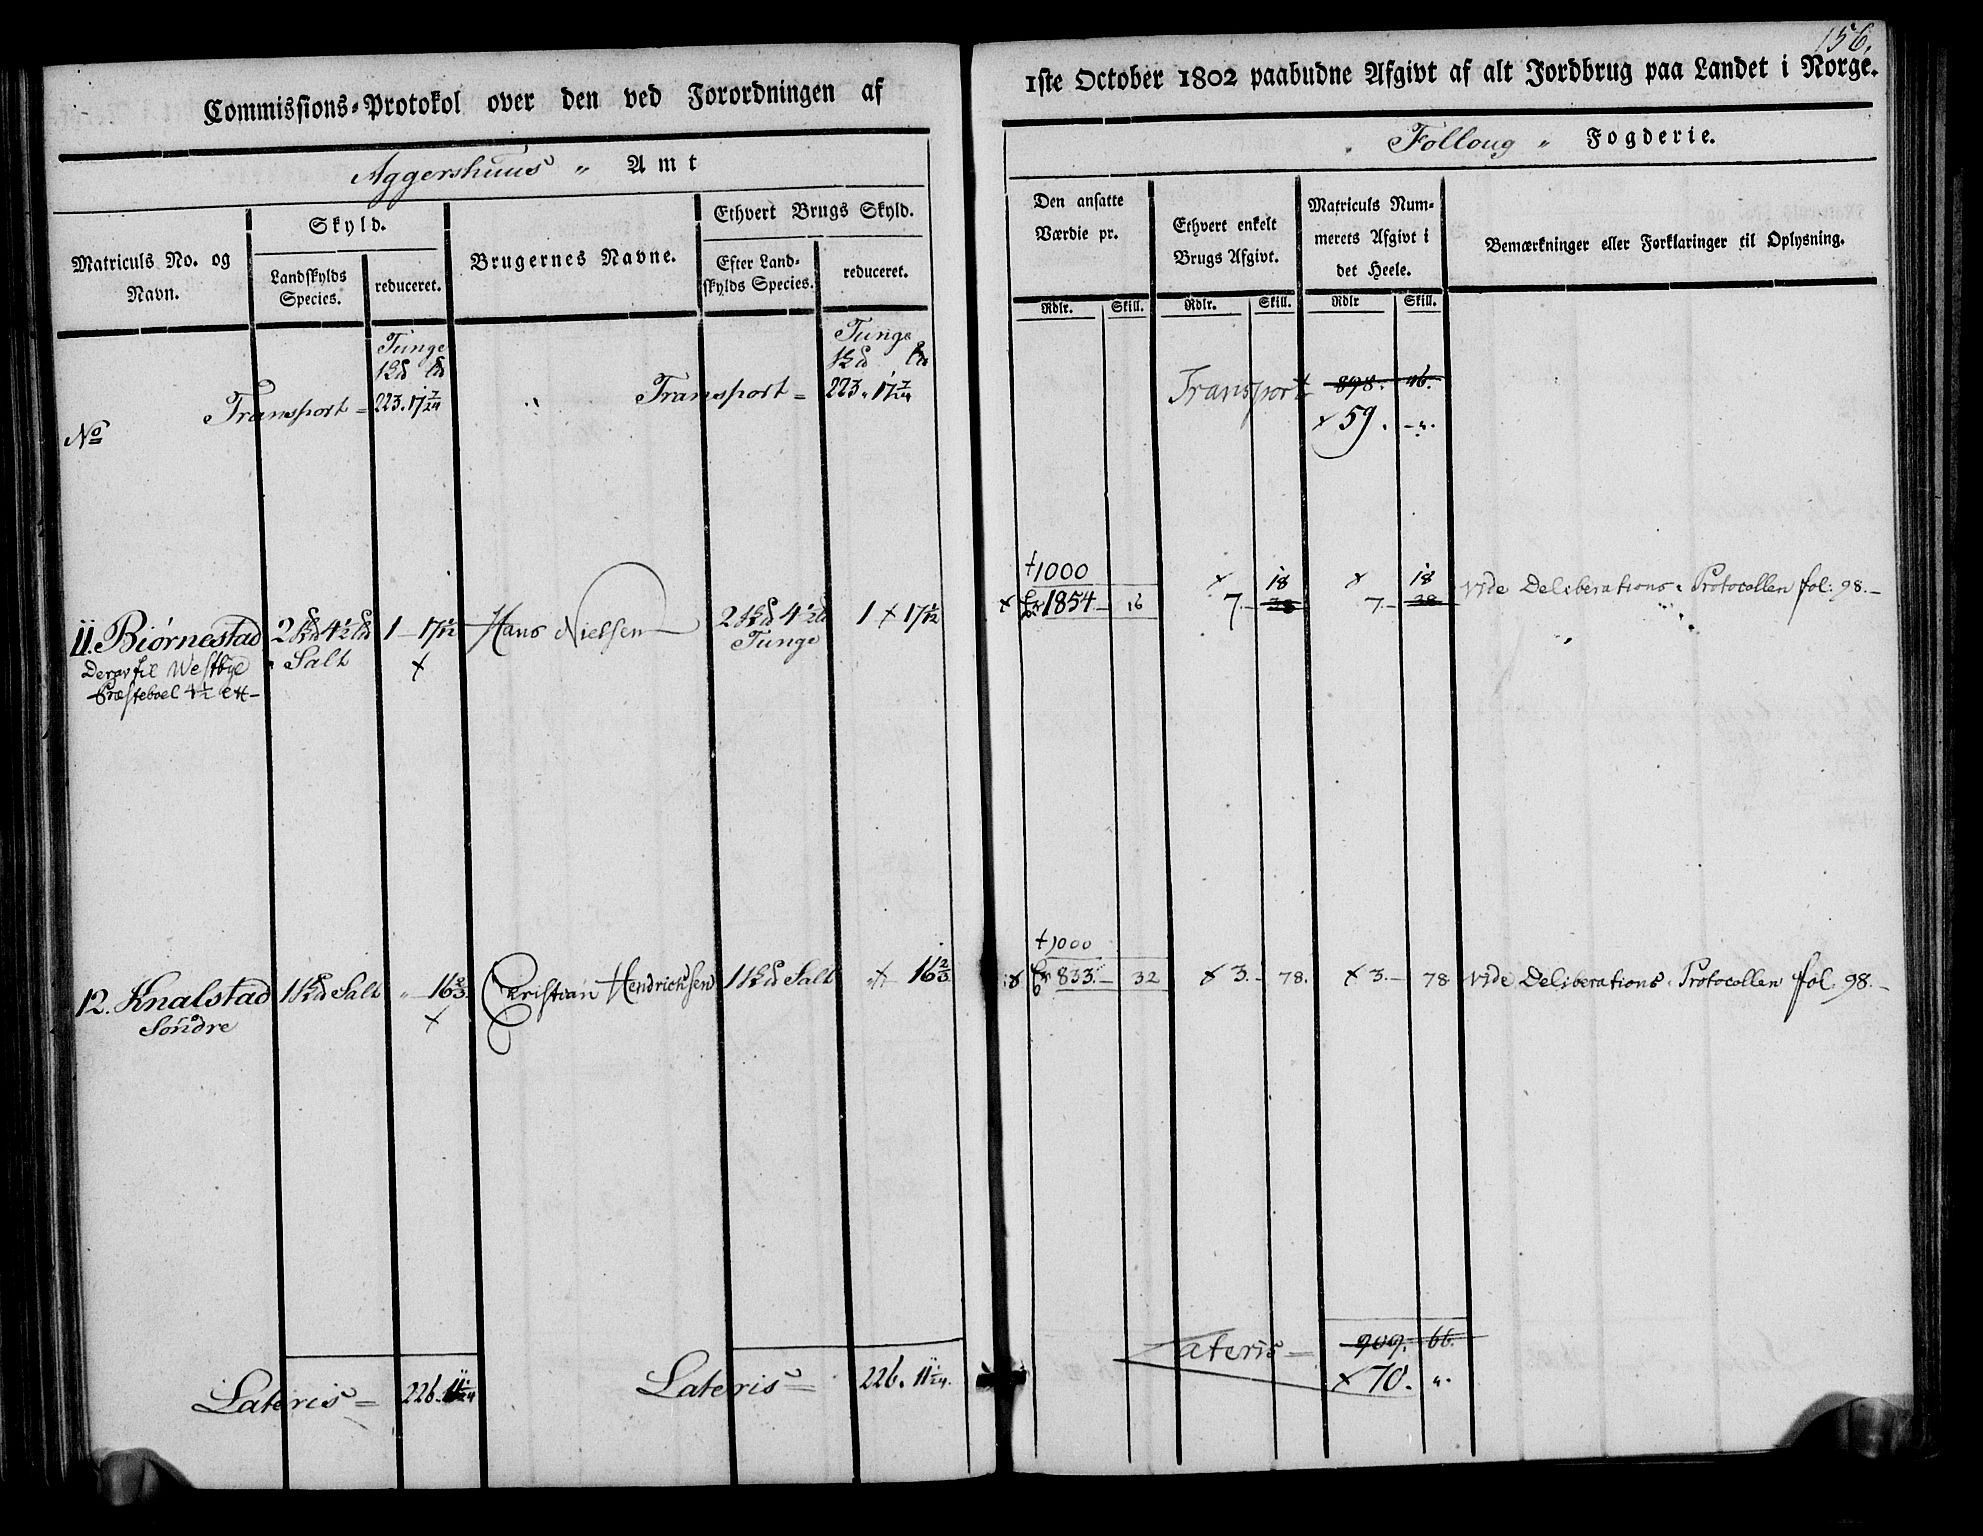 156.
Commissions-Protokol over den ved Forordningen af 1ste October 1802 paabudne Afgivt af alt Jordbrug paa Landet i Norge.
Aggershuus „ Amt
„ Folloug „ Fogderie.
Matriculs No. og Navn.
Skyld.
Landskylds Species.
reduceret.
Brugernes Navne.
Ethvert Brugs Skyld.
Efter Landskylds Species.
reduceret.
Den ansatte Værdie pr.
Rdlr. Skill.
Ethvert enkelt Brugs Afgivt.
Rdlr. Skill.
Matriculs Nummerets Afgivt i det Heele.
Rdlr Skill.
Bemærkninger eller Forklaringer til Oplysning.
Tunge
Tunge
Transport = 223. 17 7/24
Transport = 223. 17 7/24
Transport 898. 46.
× 59. - „.
No
11. Biørnestad
Deraf til Westbye
Præsteboel 4½
Salt
1 - 17 1/12
×
Hans Nielsen
Tunge
1 × 17 1/12
+1000
× 1854 - 16
× 18
7. - 38
× 18
7. - 38
vide Deliberations-Protocollen fol: 98. -
12. Knalstad
Søndre
Salt
„ - 16 2/3
×
Christian Hendrichsen
Salt
„ × 16 2/3
+1000
× 833. - 32
× 3. - 78.
× 3. - 78
vide Deliberations-Protocollen fol. 98. -
Lateris = 226. 11 1/24
Lateris = 226. 11 1/24.
Lateris = 909. 66.
× 70. „.